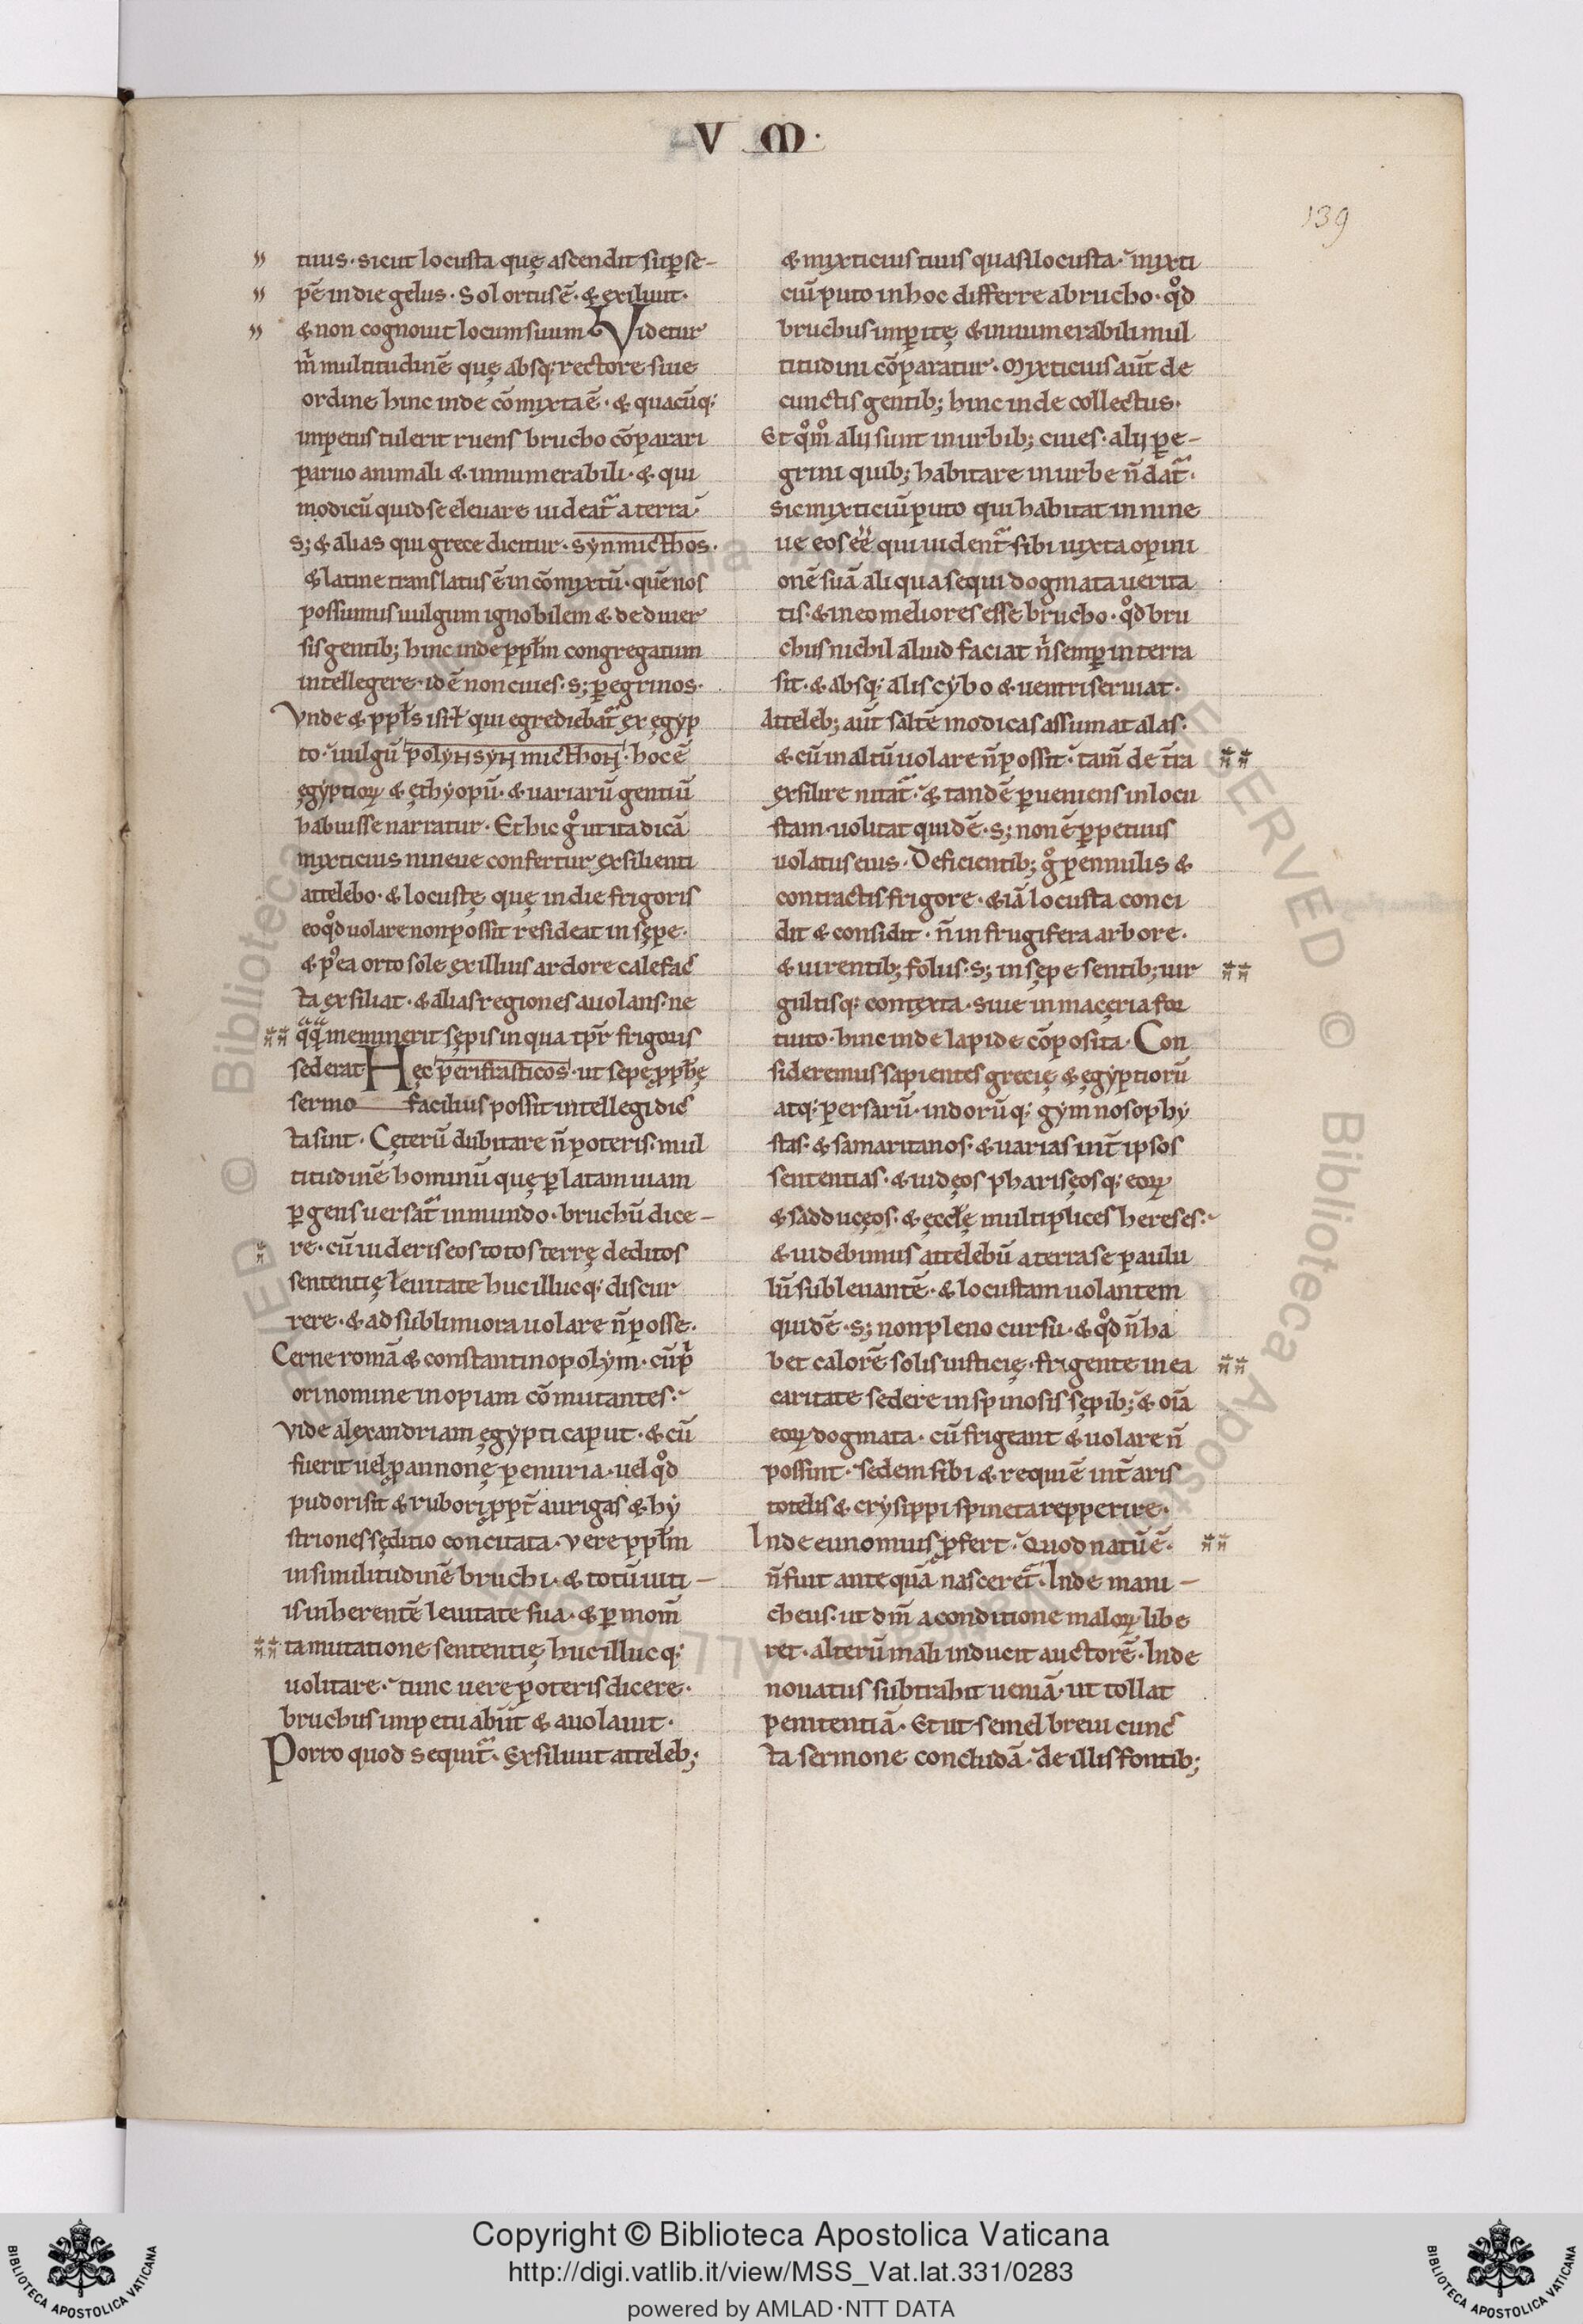 V M·
139
tuus· sicut locusta quę ascendit suꝑ se-
pē in die gelus· Sol ortus ē· & exiluit·
& non cognouit locum suum Videtur
m̄ multitudinē quę absq; rectore siue
ordine hinc inde cōmixta ē· & quacūq;
impetus tulerit ruens brucho cōparari
paruo animali & innumerabili· & qui
modicū quid se eleuare uideat᷑ a terra·
s; & alias qui grece dicitur· synmicthos·
& latine translatus ē in cōmixtū· quē nos
possumus uulgum ignobilem & de diuer
sis gentib; hinc inde ppl̄m congregatum
intellegere· id ē non ciues· s; ꝑegrinos·
Vnde & ppl̄s isrl̄ qui egrediebat᷑ ex ęgyp
to· uulgū polyn synmicthon· hoc ē
ęgyptioꝝ & ęthyopū· & uariarū gentiū
habuisse narratur· Et hic gͦ ut ita dicā
mixticius nineue confertur exsilienti
attelebo· & locustę quę in die frigoris
eo qͦd uolare non possit resideat in sępe·
& pͦea orto sole ex illius ardore calefac
ta exsiliat· & alias regiones auolans· ne
q̈q̈ meminerit sępis in qua tpr̄ frigoris
sederat Hęc perifrasticos· ut sepe pph̄ę
sermo facilius possit intellegi dic
ta sint· Cęterū dubitare n̄ poteris· mul
titudinē hominū quę ꝑ latam uiam
ꝑgens uersat᷑ in mundo· bruchū dice-
re· cū uideris eos totos terrę deditos
sententię leuitate huc illucq; discur
rere· & ad sublimiora uolare n̄ posse·
Cerne romā & constantinopolym̄· cū pͥ
ori nomine inopiam cōmutantes·
vide alexandriam ęgypti caput· & cū
fuerit uel ꝓ annonę penuria· uel qͦd
pudori sit & rubori ppt̄ aurigas & hy
striones sęditio concitata· vere ppl̄m
in similitudinē bruchi· & totū uiti-
is inherentē leuitate sua· & ꝑ mom̄
ta mutatione sententię huc illucq;
uolitare· tunc uere poteris dicere·
bruchus impetu abiit & auolauit·
Porro quod sequit᷑· Exsiluit atteleb;
& mixticius tuus quasi locusta· mixti
ciū puto in hoc differre a brucho· qͦd
bruchus imꝑitę & innumerabili mul
titudini cōparatur· Mixticius aūt de
cunctis gentib; hinc inde collectus·
Et qͦmͦ alii sunt in urbib; ciues· alii ꝑe-
grini quib; habitare in urbe n̄ dat᷑·
sic mixticiū puto qui habitat in nine
ue eos eē qui uident᷑ sibi iuxta opini
onē suā aliqua sequi dogmata uerita
tis· & in eo meliores esse brucho· qͦd bru
chus nichil aliud faciat n̄ semꝑ in terra
sit· & absq; alis cybo & uentri seruiat·
Atteleb; aūt saltē modicas assumat alas·
& cū in altū uolare n̄ possit· tam̄ de t̄ra
exsilire nitat᷑· & tandē ꝑueniens in locu
stam· uolitat quidē· s; non ē ꝑpetuus
uolatus eius· Deficientib; gͦ pennulis &
contractis frigore· & iā locusta conci
dit & considit· n̄ in frugifera arbore·
& uirentib; foliis· s; in sępe sentib; uir
gultisq; contexta· siue in maceria for
tuito· hinc inde lapide cōposita· Con
sideremus sapientes grecię & ęgyptiorū
atq; persarū· indorūq; gymnosophy
stas· & samaritanos· & uarias int̄ ipsos
sententias· & iudęos pharisęosq; eoꝝ
& sadducęos· & ęccl̄ę multiplices hereses·
& uidebimus attelebū a terra se paulu
lū subleuantē· & locustam uolantem
quidē· s; non pleno cursu· & qͦd n̄ ha
bet calorē solis iusticię· frigente in ea
caritate sedere in spinosis sępib; & oīa
eoꝝ dogmata· cū frigeant & uolare n̄
possint· sedem sibi & requiē int̄ aris
totelis & crysippi spineta repperire·
Inde eunomius ꝓfert· Quod natū ē·
n̄ fuit antequā nasceret᷑· Inde mani-
cheus· ut dm̄ a conditione maloꝝ libe
ret· alterū mali inducit auctorē· Inde
nouatus subtrahit ueniā· ut tollat
penitentiā· Et ut semel breui cunc
ta sermone concludā· de illis fontib;
Copyright © Biblioteca Apostolica Vaticana
http://digi.vatlib.it/view/MSS_Vat.lat.331/0283
powered by AMLAD·NTT DATA
BIBLIOTECA APOSTOLICA VATICANA
BIBLIOTECA APOSTOLICA VATICANA